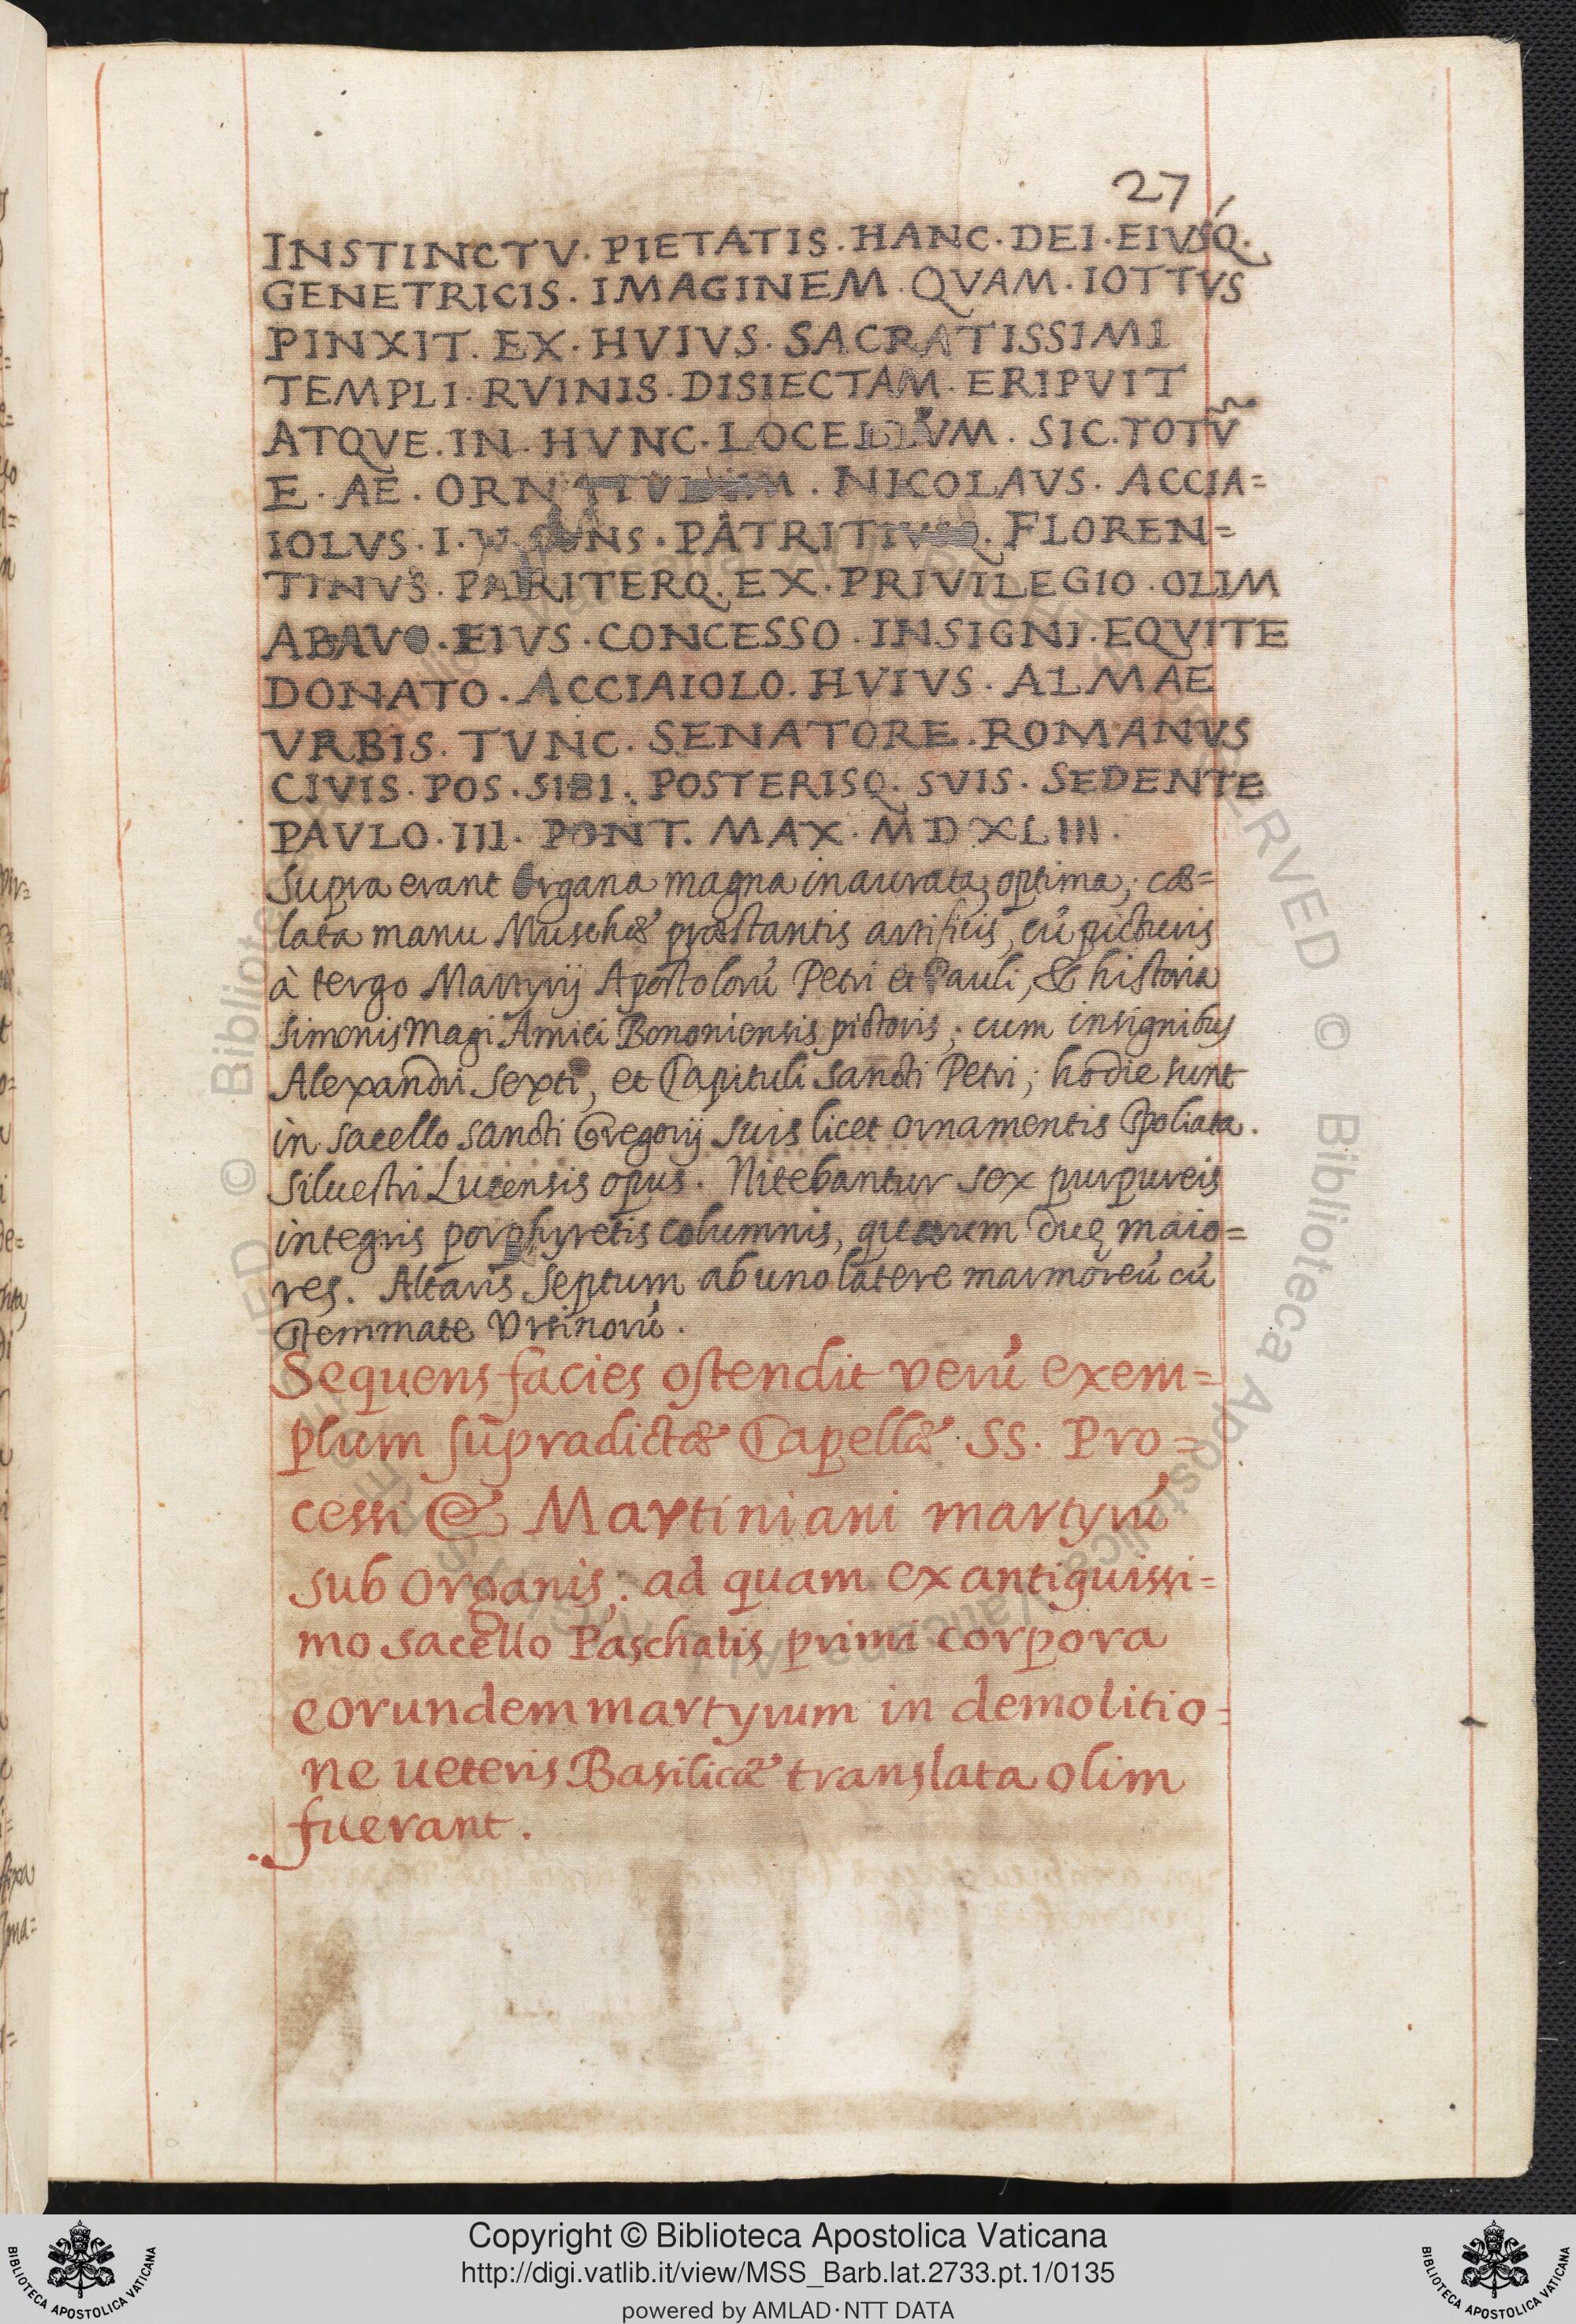 27
INSTINCTV · PIETATIS · HANC · DEI · EIVSQ.
GENETRICIS · IMAGINEM · QVAM · IOTTVS
PINXIT · EX · HVIVS · SACRATISSIMI
TEMPLI · RVINIS · DISIECTAM · ERIPVIT
ATQVE · IN · HVNC · LOCELLVM · SIC · TOTṼ
E · AE · NICOLAVS · ACCIA=
IOLVS · I · PATRITIVSQ. FLOREN=
TINVS · PARITERQ. EX · PRIVILEGIO · OLIM
ABAVO · EIVS · CONCESSO · INSIGNI · EQVITE
DONATO · ACCIAIOLO · HVIVS · ALMAE
VRBIS · TVNC · SENATORE · ROMANVS
CIVIS · POS · 5181 · POSTERISQ. SVIS · SEDENTE
PAVLO · III · PONT. MAX · MDXLIII ·
Supra erant Organa magna inaurata, optima, cæ=
lata manu Muschæ præstantis artificis, cũ picturis
à tergo Martyrij Apostolorũ Petri et Pauli, & historia
Simonis Magi Amici Bononiensis pictoris; cum insignibus
Alexandri Sexti, et Capituli Sancti Petri; hodie sunt
in sacello sancti Gregorij suis licet ornamentis spoliata.
Siluestri Lucensis opus. Nitebantur sex purpureis
integris porphyretis columnis, quarum duę maio=
res. Altaris septum ab uno latere marmoreũ cũ
stemmate Vrsinorũ.
Sequens facies ostendit verũ exem=
plum supradictæ Capellæ SS. Pro=
cessi & Martiniani martyrũ
sub Organis; ad quam ex antiquissi=
mo sacello Paschalis primi corpora
eorundem martyrum in demolitio=
ne ueteris Basilicæ translata olim
fuerant.
Copyright © Biblioteca Apostolica Vaticana
http://digi.vatlib.it/view/MSS_Barb.lat.2733.pt.1/0135
powered by AMLAD·NTT DATA
BIBLIOTECA APOSTOLICA VATICANA
BIBLIOTECA APOSTOLICA VATICANA